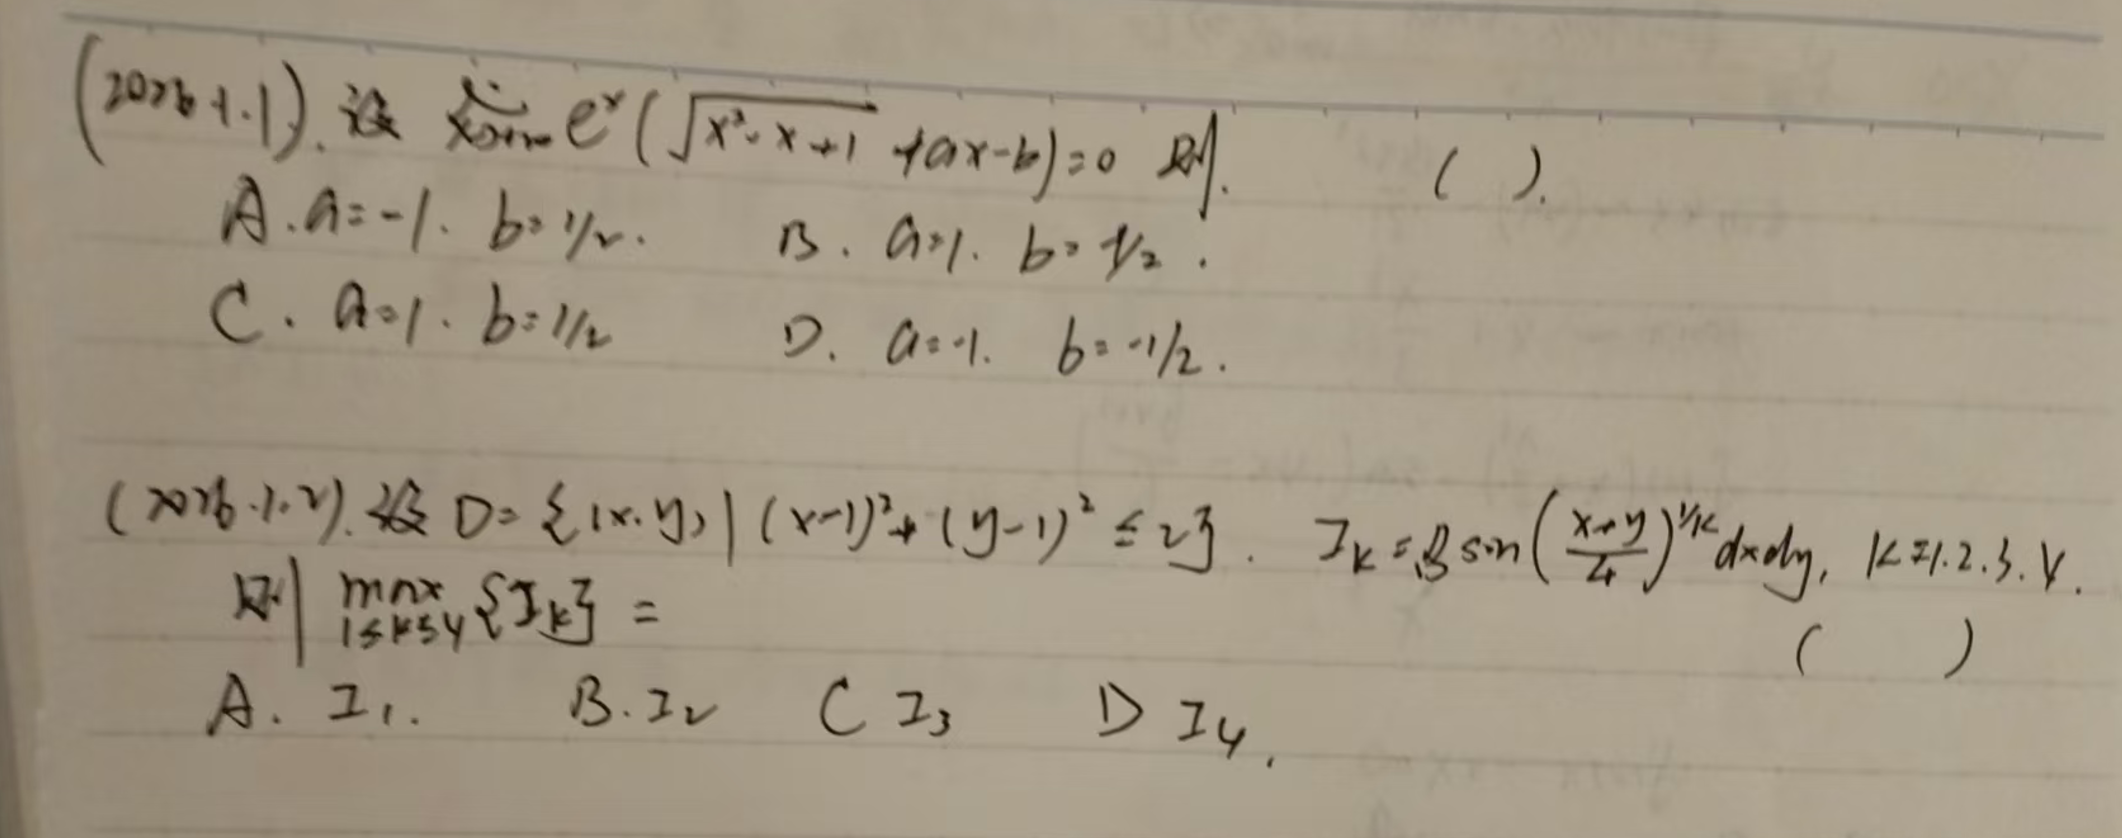 (2026.1.1). 设 lim x→+∞ e^x (√(x²-x+1) +ax-b)=0 则. ( ).
A. a=-1. b=1/2. B. a=1. b=-1/2.
C. a=1. b=1/2 D. a=-1. b=-1/2.
(2026.1.2). 设 D={(x.y)|(x-1)²+(y-1)²≤2}. I_k=∬ sin((x+y)/4)^(1/k) dxdy, k=1.2.3.4.
则 max 1≤k≤4 {I_k} =
( )
A. I₁. B. I₂ C I₃ D I₄.